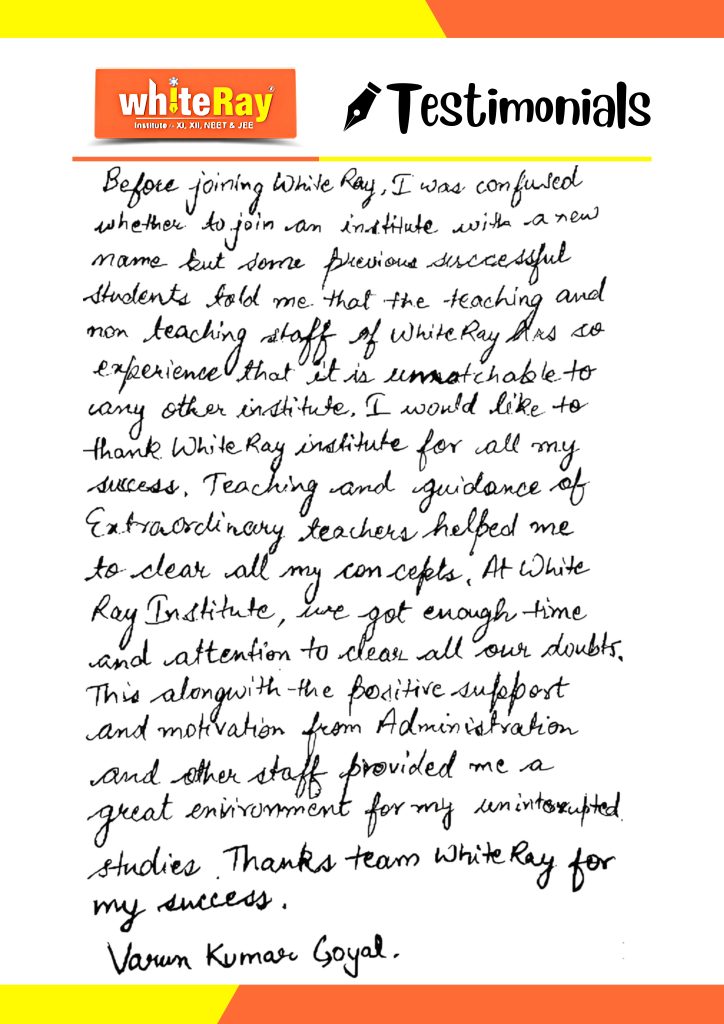 whiteRay
Institute :- XI, XII, NEET & JEE
Testimonials
Before joining White Ray, I was confused
whether to join an institute with a new
name but some previous successful
students told me that the teaching and
non teaching staff of WhiteRay has so
experience that it is unmatchable to
any other institute. I would like to
thank WhiteRay institute for all my
success. Teaching and guidance of
Extraordinary teachers helped me
to clear all my concepts. At White
Ray Institute, we got enough time
and attention to clear all our doubts.
This alongwith the positive support
and motivation from Administration
and other staff provided me a
great environment for my uninterupted
studies. Thanks team WhiteRay for
my success.
Varun Kumar Goyal.